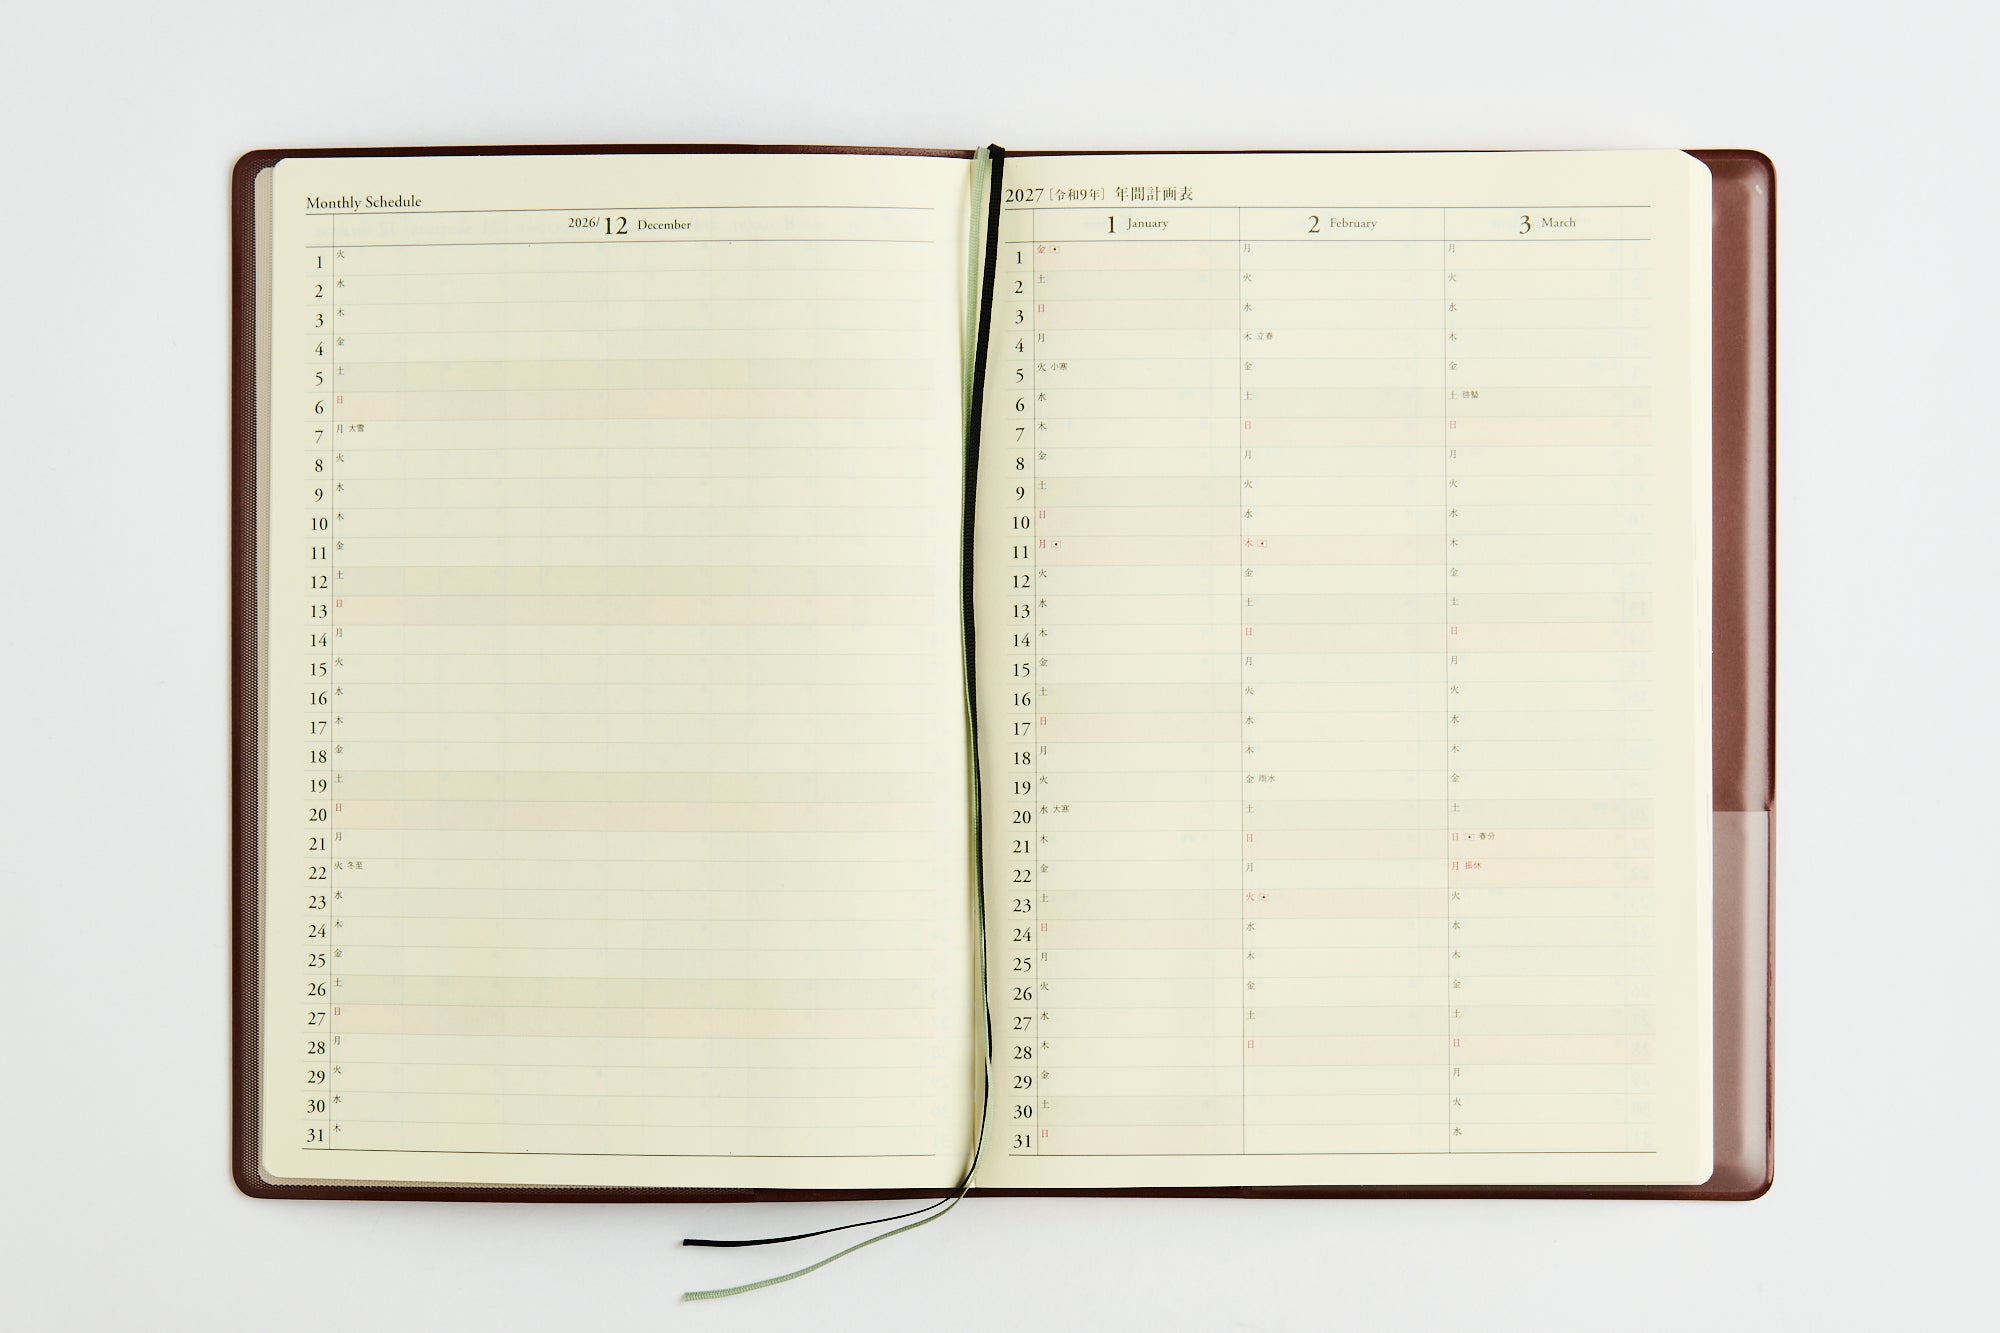 Monthly Schedule
2026/12 December
1 火
2 水
3 木
4 金
5 土
6 日
7 月 大雪
8 火
9 水
10 木
11 金
12 土
13 日
14 月
15 火
16 水
17 木
18 金
19 土
20 日
21 月
22 火 冬至
23 水
24 木
25 金
26 土
27 日
28 月
29 火
30 水
31 木
2027［令和9年］ 年間計画表
1 January 2 February 3 March
1 金 月 月
2 土 火 火
3 日 水 水
4 月 木 立春 木
5 火 小寒 金 金
6 水 土 土 啓蟄
7 木 日 日
8 金 月 月
9 土 火 火
10 日 水 水
11 月 木 木
12 火 金 金
13 水 土 土
14 木 日 日
15 金 月 月
16 土 火 火
17 日 水 水
18 月 木 木
19 火 金 雨水 金
20 水 大寒 土 土
21 木 日 日 春分
22 金 月 月 振休
23 土 火 火
24 日 水 水
25 月 木 木
26 火 金 金
27 水 土 土
28 木 日 日
29 金 月
30 土 火
31 日 水